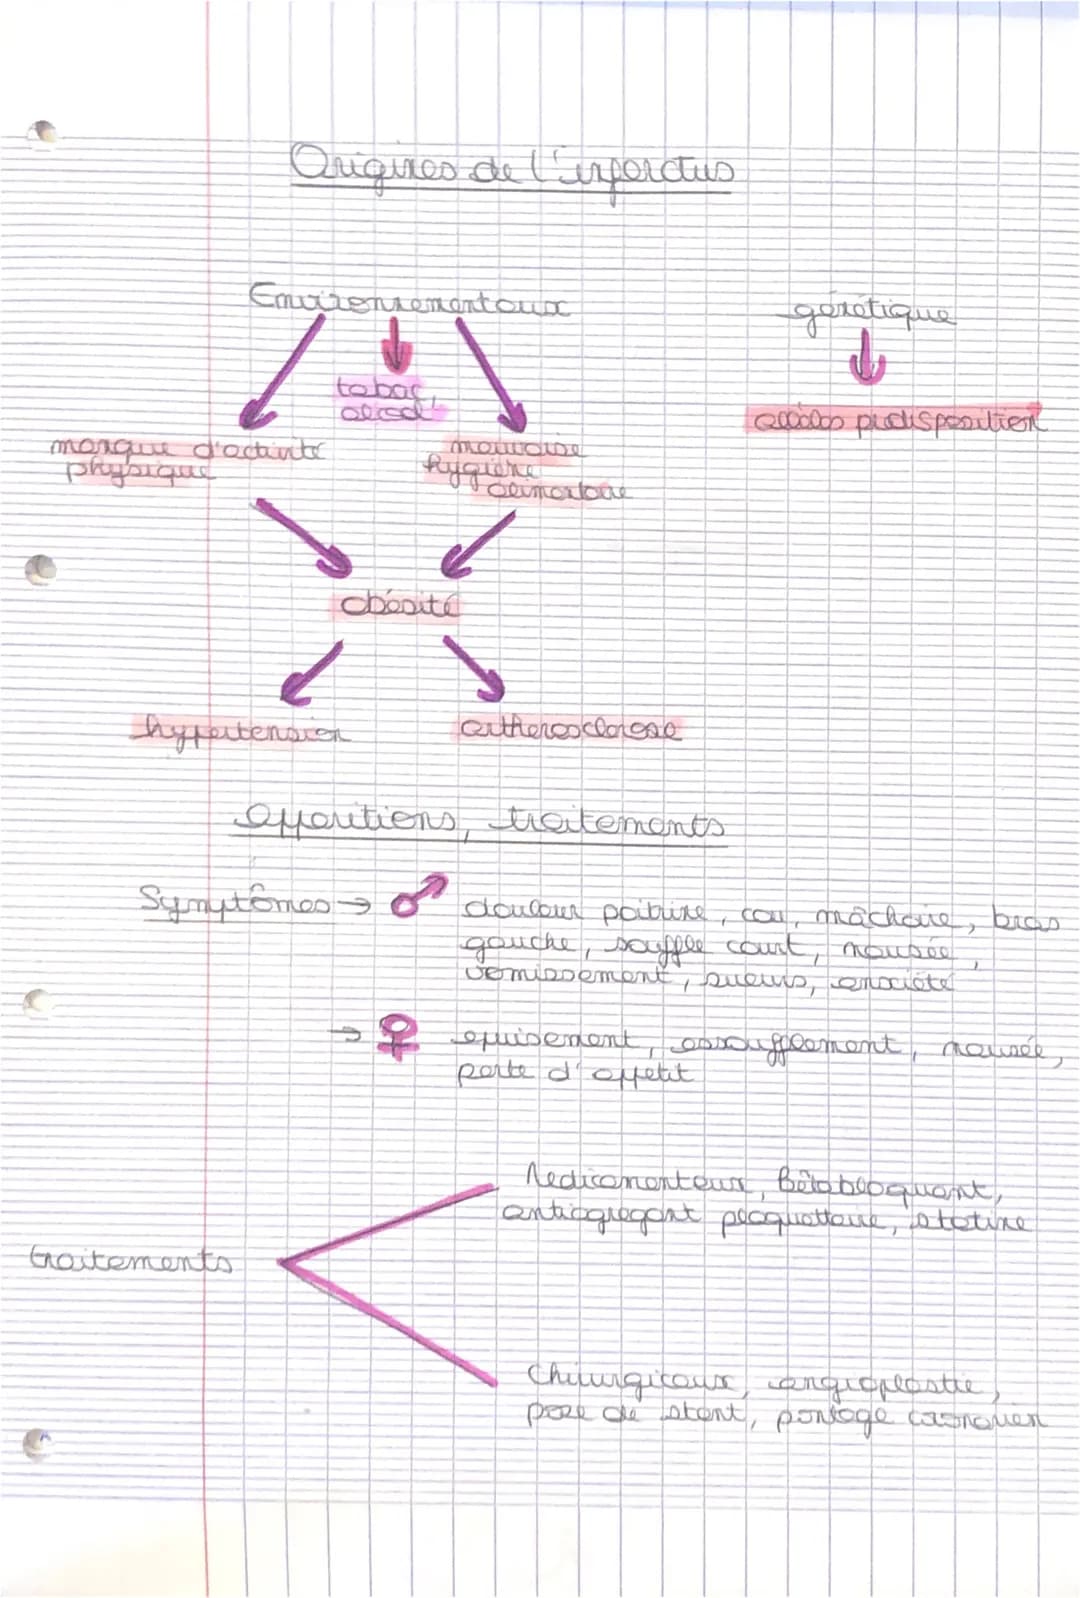 Origines de l'infarctus
Environnementaux
génétique
tabac,
alcool
allèles prédisposition
manque d'activité
physique
mauvaise
hygiène
alimentaire
obésité
hypertension
artherosclerose
apparitions, traitements
Symptômes → ♂ douleur poitrine, cou, mâchoire, bras
gauche, souffle court, nausée,
vomissement, sueurs, anxiété
→ ♀ epuisement, essoufflement, nausée,
perte d'appétit
Medicamenteux, Bêtabloquant,
antiagregant plaquettaire, statine
traitements
Chirurgicaux, angioplastie,
pose de stent, pontage coronarien